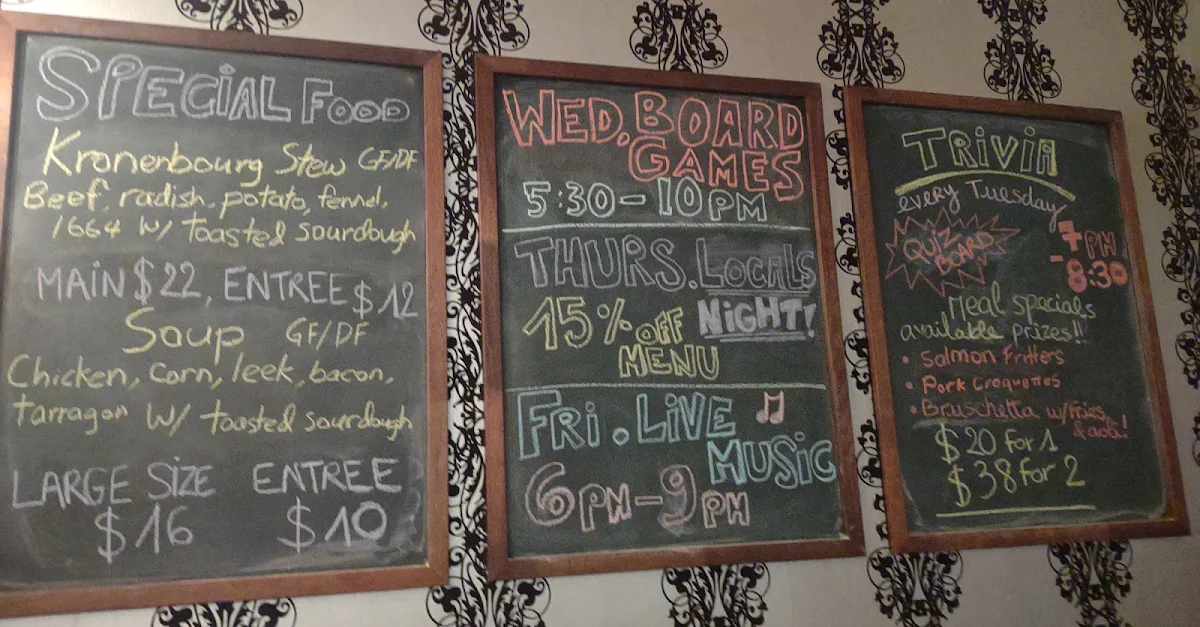 SPECIAL FOOD
Kronenbourg Stew GF/DF
Beef, radish, potato, fennel,
1664 W/ toasted sourdough
MAIN $22, ENTREE $12
Soup GF/DF
Chicken, corn, leek, bacon,
tarragon W/ toasted sourdough
LARGE SIZE ENTREE
$16 $10
WED. BOARD
GAMES
5:30-10PM
THURS. LOCALS
NIGHT!
15% OFF
MENU
FRI. LIVE
MUSIC
6PM-9PM
TRIVIA
every Tuesday
QUIZ
BOARD
7PM
-8:30
Meal specials
available prizes!!
• Salmon Fritters
• Pork Croquettes
• Bruschetta w/ Fries
$20 for 1
$38 for 2